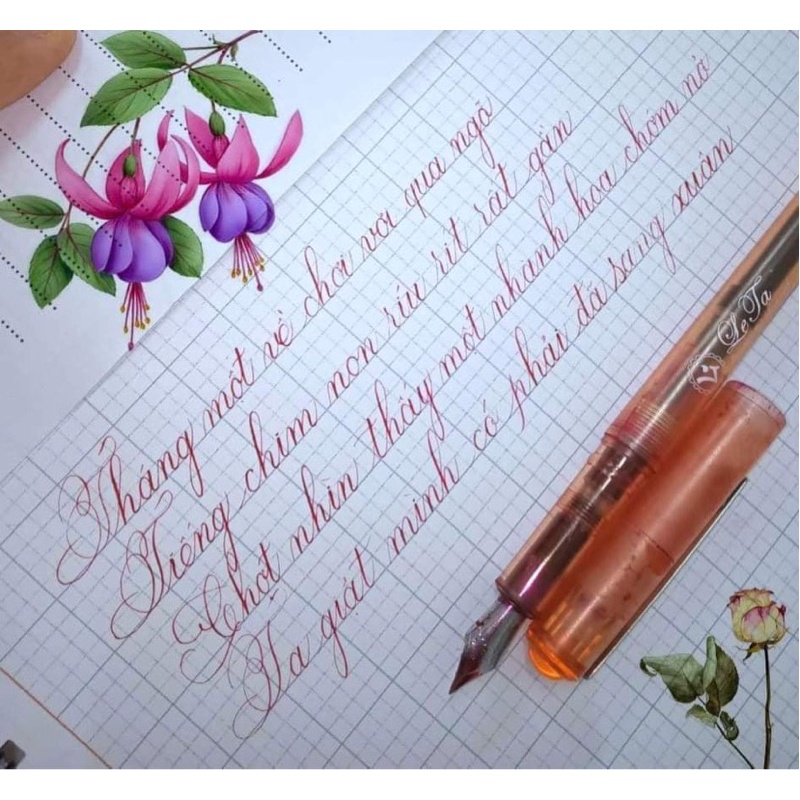 Tháng một về chơi vơi qua ngõ
Tiếng chim non ríu rít rất gần
Chợt nhìn thấy một nhành hoa chớm nở
Ta giật mình có phải đã sang xuân
LeTa